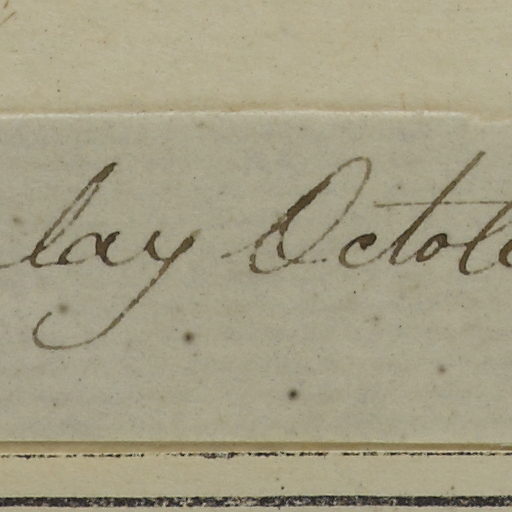 lay Octob